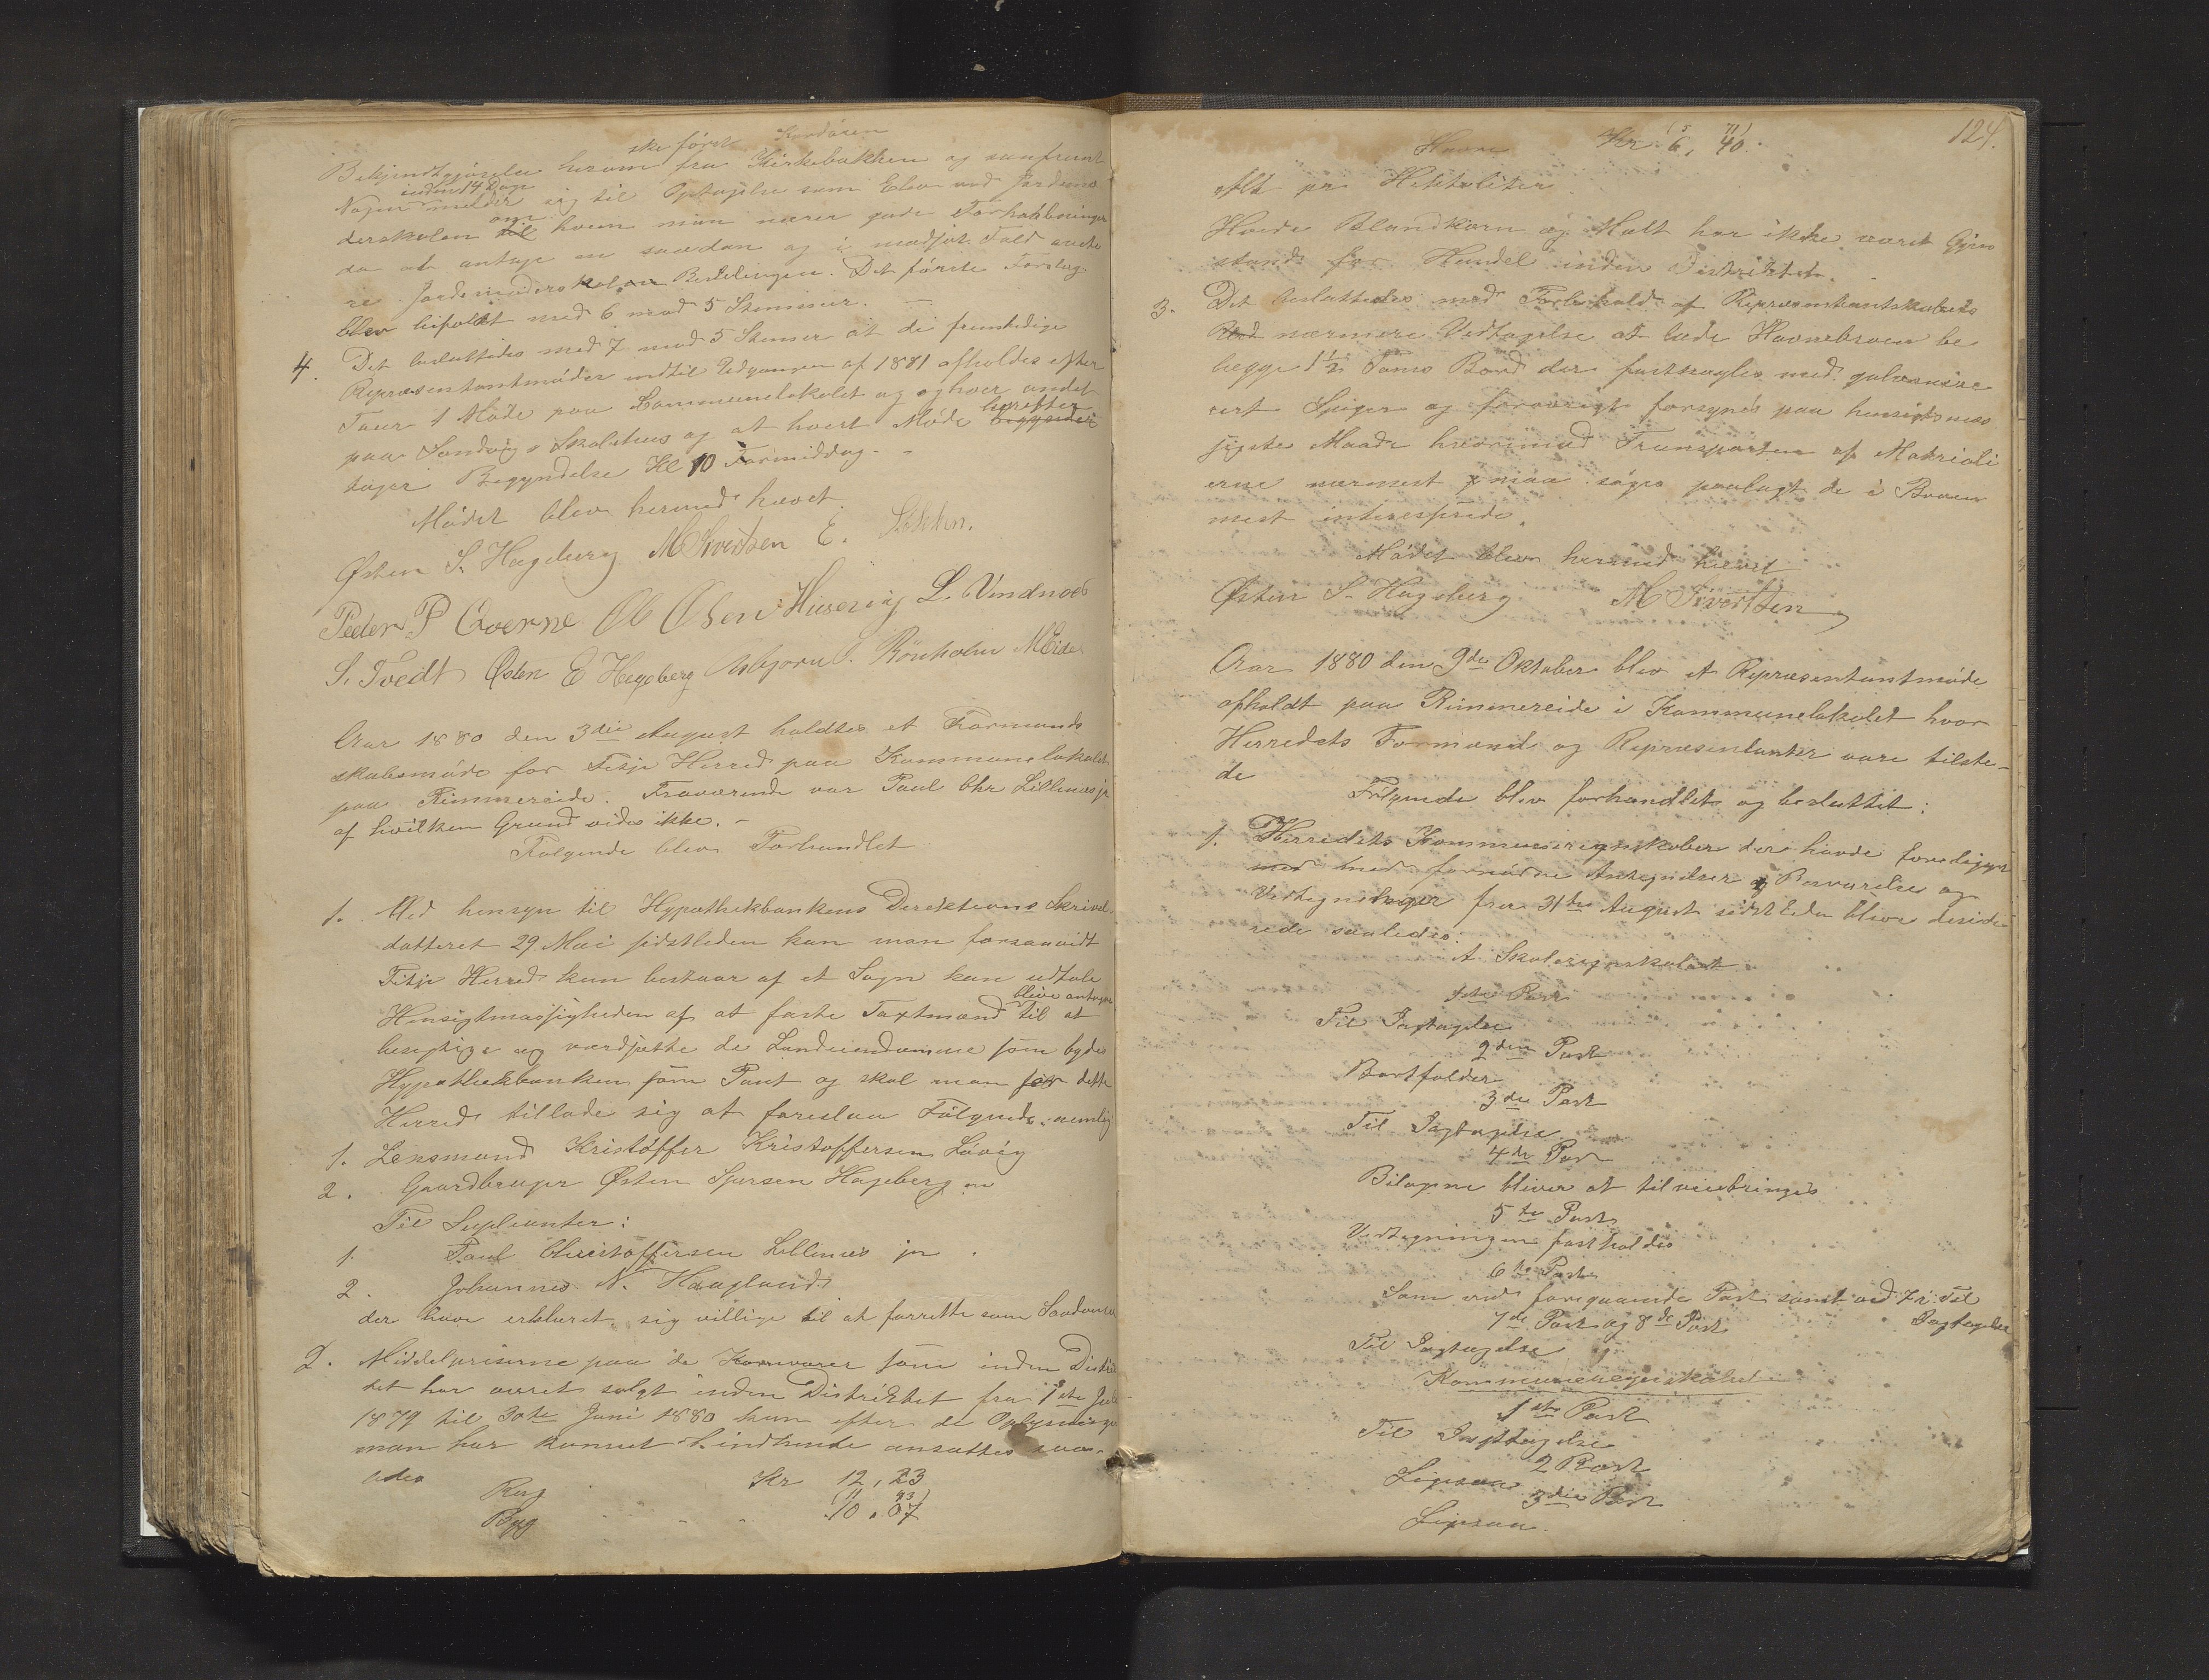 ske først Kordøren
Bekjendtgjørelse herom fra Kirkebakken og saafremt
inden 14 Dage
Nogen melder sig til Optagelse som Elev ved Jordemo
om
derskolen til hvem man nærer gode Forhaabninger
da at antage en saadan og i modsat Fald avete
re Jordemoderskolen Bestilingen. Det første Forslag
blev bifaldt med 6 mod 5 Stemmer. —
4. Det besluttedes med 7 mod 5 Stemmer at de fremtidige
Repræsentantmøder indtil Udgangen af 1881 afholdes efter
Tour 1 Møde paa Communelokalet og og hver andet
paa Sandvig s Skolehus og at hvert Møde herefter
tager Begyndelse Kl 10 Formiddag. -
Mødet blev hermed hævet.
Østen S. Hageberg M Sivertsen E.
Peder P Qverne Ol Olsen Husevig L. Vindnæs
S. Tvedt Østen E Hegeberg Asbjørn I. Rönholm M Eide
Aar 1880 den 3die August holdtes et Formands
skabsmøde for Fitje Herred paa Kommunelokalet
paa Rimmereide. Fraværende var Paul Chr Lillenæs jr
af hvilken Grund vides ikke. -
Følgende blev Forhandlet
1. Med hensyn til Hypothekbankens Direktions Skrivel
datteret 29 Mai sidstleden kan man forsaavidt
Fitje Herred kun bestaar af et Sogn kun udtale
blive antagne
Hensigtmæssigheden af at faste Taxtmænd til at
besigtige og værdsætte de Landeiendomme som bydes
Hypothekbanken som Pant og skal man for dette
Herred tillade sig at foreslaa Følgende: nemlig
1. Lensmand Kristoffer Kristoffersen Løvig
2. Gaardbruger Østen Sjursen Hageberg og
Til Suplianter:
1. Paul Christoffersen Lillenæs jr.
2. Johannes N. Haagland
der have erklæret sig villige til at forrette som Saadanne
2. Middelpriserne paa de Kornvarer som inden Distri
det har været solgt inden Distriktet fra 1ste Juli
1879 til 30te Juni 1880 kan efter de Oplysninger
man har kunnet indhente ansættes saa-
ledes
Rug Kr 12, 23
(11 43)
Byg - - - 10, 07
124.
(5 71)
Havre Kr 6, 40.
Alt pr Hektoliter
Hvede Blandkorn og Malt har ikke været Gjen
stand for Handel inden Distriktet.
3. Det besluttedes med Forbehold af Repræsentantskabets
Ved nærmere Vedtagelse at lade Havnebroen be
lægge 1½ Toms Bord der fastnagles med galvanise
rert Spiger og forøvrigt forsynes paa hensigtsmæs
sigste Maade hvorimod Transporten af Materiali
erne nærmest maa søges paalagt de i Broen
mest interesserede.
Mødet blev hermed hævet
Østen S. Hageberg M Sivertsen
Aar 1880 den 9de Oktober blev et Repræsentantmøde
afholdt paa Rimmereide i Kommunelokalet hvor
Herredets Formænd og Repræsentanter vare tilste-
de
Følgende blev forhandlet og besluttet:
1. Herredets Kommuneregnskaber der havde foreligget
med med fornødne Antegnelser og Besvarelse og
Vedtegninger fra 31te August sidstleden bleve deside
rede saaledes:
A Skoleregnskabet
1ste Post
Til Iagtagelse
2den Post
Bortfalder
3die Post
Til Iagtagelse
4de Post
Bilagene bliver at tilveiebringes
5te Post
Vedtegningen fastholdes
6te Post
Som ved foregaaende Post samt ved 7n Til
Iagtagelse
7de Post og 8de Post
Til Iagtagelse
Kommuneregnskabet
1ste Post
Til Iagttagelse
2 Post
Ligesaa
3die Post
Ligesaa.